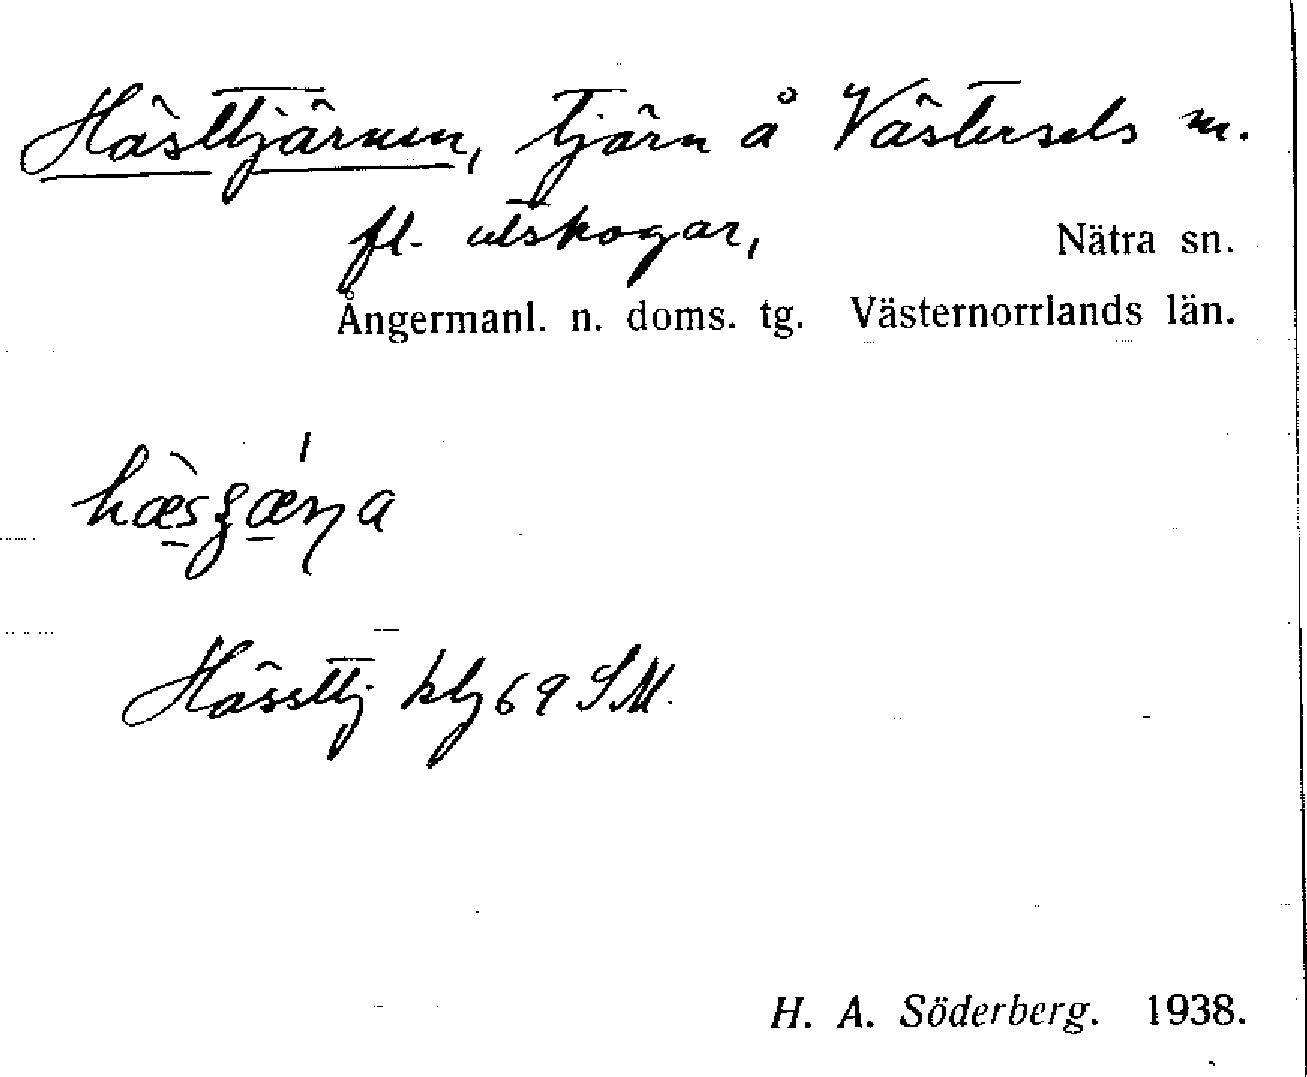 Hästtjärnen, tjärn å Västersels m.
fl. utskogar, Nätra sn.
Ångermanl. n. doms. tg. Västernorrlands län.
Hästtj klj 69 SM.
H. A. Söderberg. 1938.